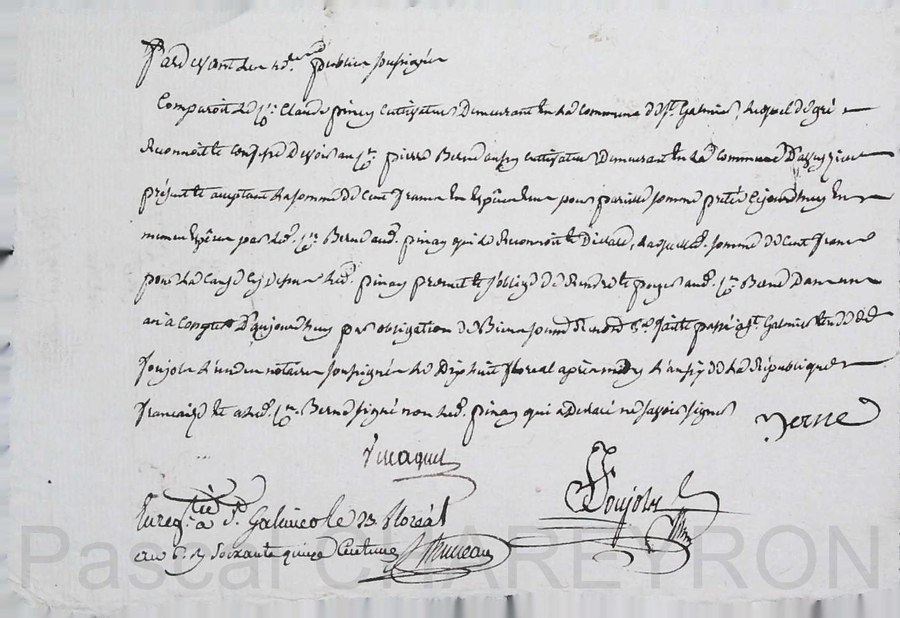 Pardevant les no.res publics soussignés
Comparoit le C.en Claude pinay cultivateur Demeurant en la commune de S.t Galmier, lequel de gré
Reconnoit et confesse devoir au C.en pierre Berne aussy cultivateur Demeurant en la commune
présent et acceptant la somme de Cent francs en Espèces pour pareille somme prêtée cejourd'huy en
mêmes Espèces par led. C.en Berne aud. pinay qui le Reconnoit et Déclare, laquelle somme de Cent francs
pour la cause cy dessus led. pinay promet et s'oblige de Rendre et payer aud. C.en Berne Dans un
an à Compter D'aujourd'huy par obligation de Biens passé à S.t Galmier Etude de
Soujols l'un des notaires soussignés le Dix huit floréal après midy l'an six de la République
française et a led. C.en Berne signé non led. pinay qui a Déclaré ne savoir signer
Berne
Soujols
Enreg.tré à S.t Galmier le 23 floréal
an 6. R soixante quinze Centimes
Pascal CHAREYRON